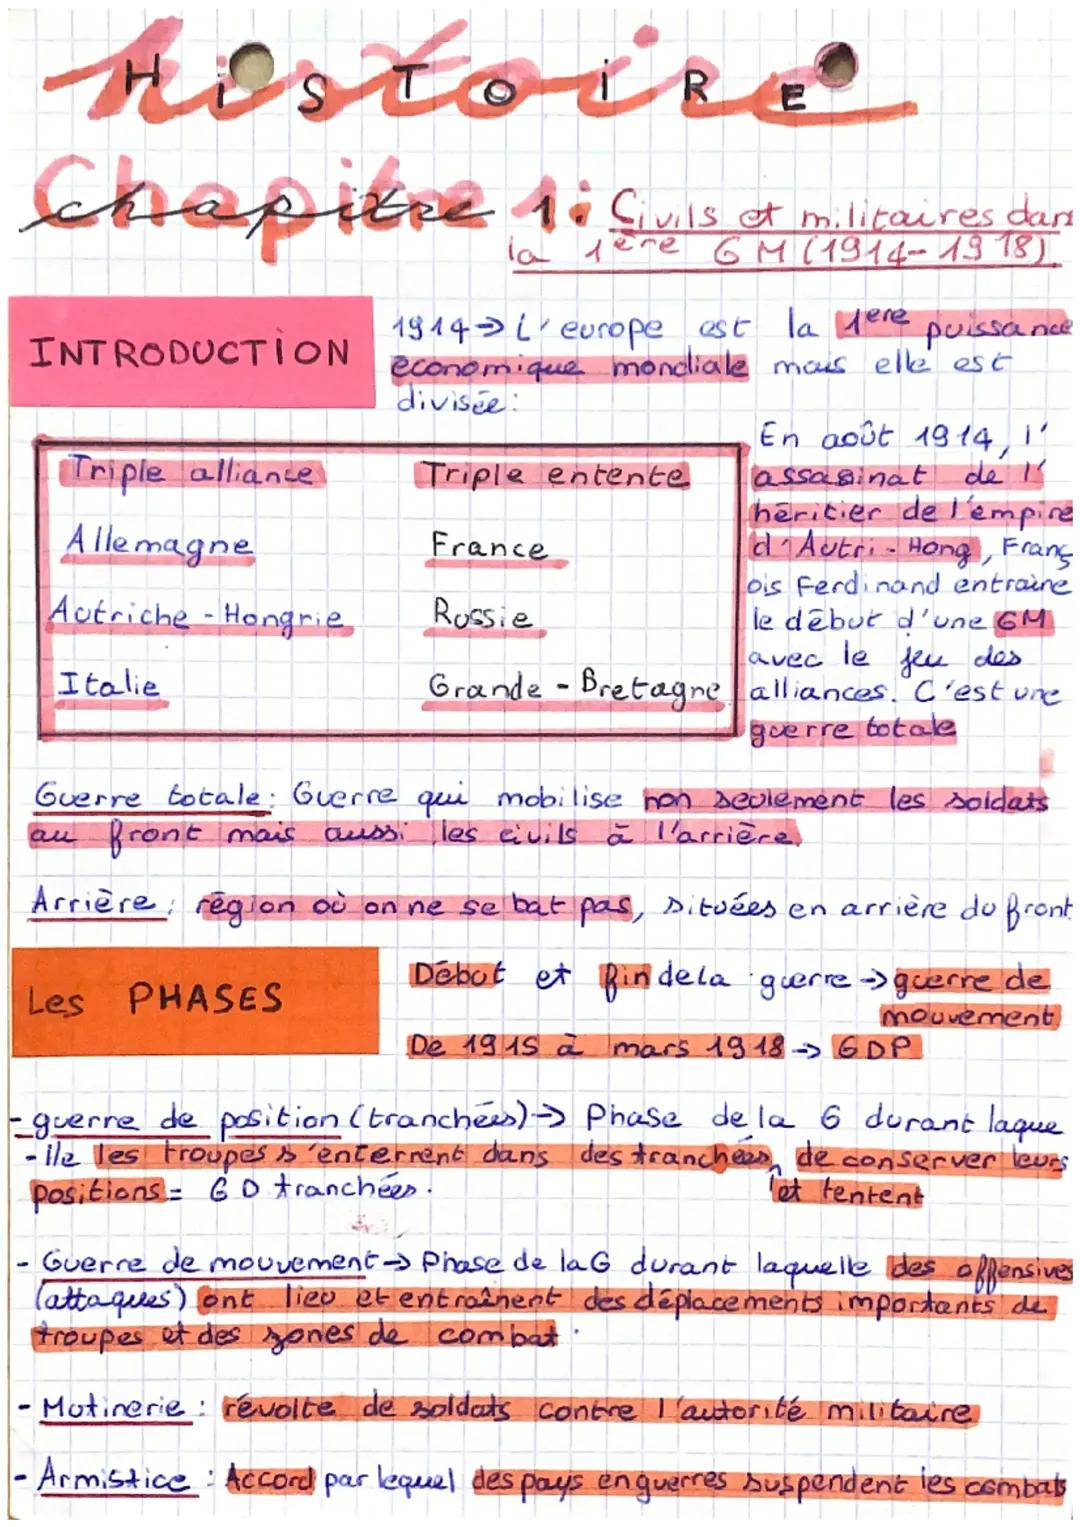 histoire
HiSTOiRE
Chapitre 1: Civils et militaires dans
la 1ère GM (1914-1918)
INTRODUCTiON
1914→ L'europe est la 1ere puissance
économique mondiale mais elle est
divisée:
Triple alliance Triple entente
Allemagne France
Autriche - Hongrie Russie
Italie Grande - Bretagne
En août 1914, l'
assasinat de l'
héritier de l'empire
d'Autri - Hong, Franç
ois Ferdinand entraine
le début d'une GM
avec le jeu des
alliances. C'est une
guerre totale
Guerre totale: Guerre qui mobilise non seulement les soldats
au front mais aussi les civils à l'arrière.
Arrière: région où on ne se bat pas, situées en arrière du front
Les PHASES
Début et fin de la guerre → guerre de
mouvement
De 1915 à mars 1918 → GDP
- guerre de position (tranchées) → Phase de la G durant laque
- lle les troupes s'enterrent dans des tranchées, de conserver leurs
positions = G D tranchées. et tentent
- Guerre de mouvement → Phase de la G durant laquelle des offensives
(attaques) ont lieu et entraînent des déplacements importants de
troupes et des zones de combat.
- Mutinerie : révolte de soldats contre l'autorité militaire
- Armistice : Accord par lequel des pays en guerres suspendent les combats